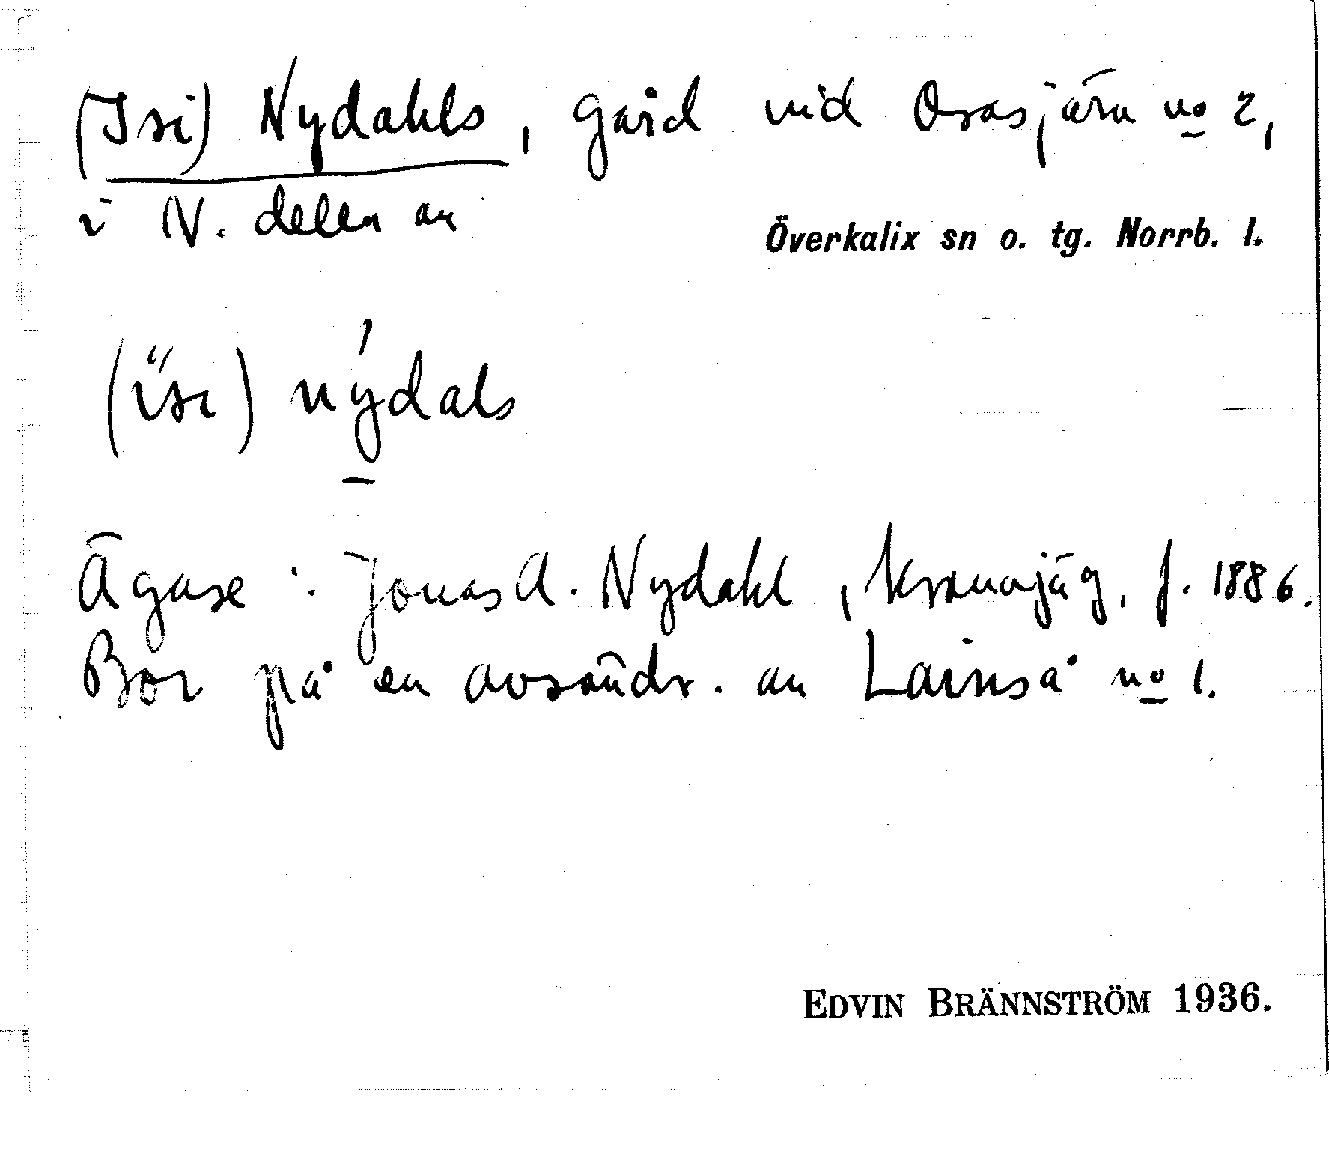 (Isi) Nydahls, gård vid Orrasjärv no 2,
i N. delen av
Överkalix sn o. tg. Norrb. l.
(ïsi) nýdals
Ägare: Jonas A. Nydahl, kronojäg., f. 1886.
Bor på en avsöndr. av Lainså no 1.
EDVIN BRÄNNSTRÖM 1936.